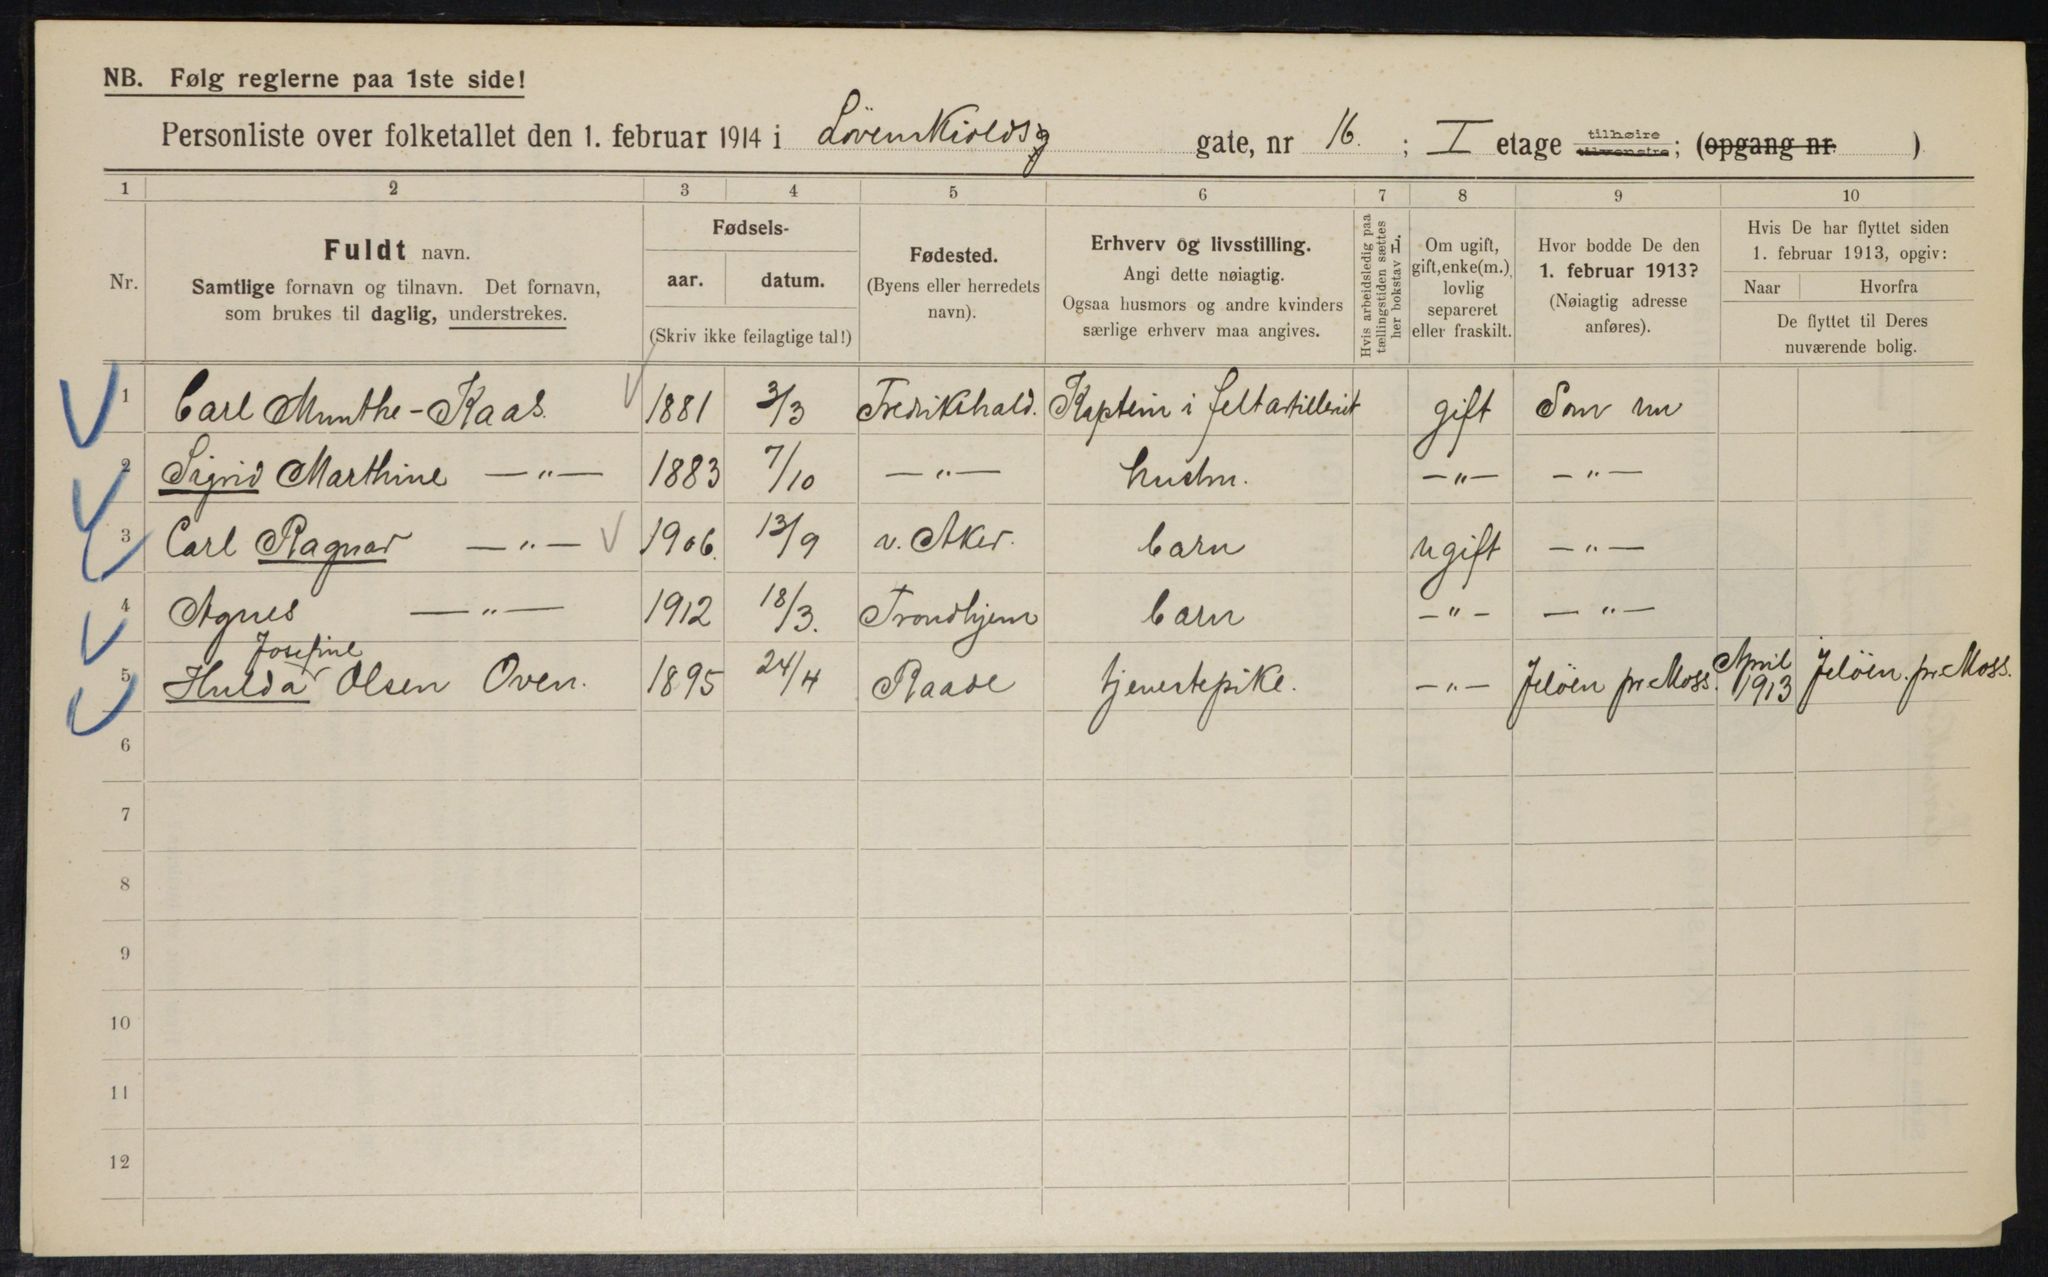 NB. Følg reglerne paa 1ste side!
Personliste over folketallet den 1. februar 1914 i Lövenskioldsg gate, nr 16. ; I etage tilhøire tilvenstre; (opgang nr. )
1 2 3 4 5 6 7 8 9 10
Nr.
Fuldt navn.
Samtlige fornavn og tilnavn. Det fornavn,
som brukes til daglig, understrekes.
Fødsels-
aar. datum.
(Skriv ikke feilagtige tal!)
Fødested.
(Byens eller herredets
navn).
Erhverv og livsstilling.
Angi dette nøiagtig.
Ogsaa husmors og andre kvinders
særlige erhverv maa angives.
Hvis arbeidsledig paa
tællingstiden sættes
her bokstav L.
Om ugift,
gift, enke(m.),
lovlig
separeret
eller fraskilt.
Hvor bodde De den
1. februar 1913?
(Nøiagtig adresse
anføres).
Hvis De har flyttet siden
1. februar 1913, opgiv:
Naar Hvorfra
De flyttet til Deres
nuværende bolig.
1 Carl Munthe-Kaas. 1881 3/3 Fredrikshald. Kaptein i feltartilleriet gift Som nu
2 Sigrid Marthine —"— 1883 7/10 —"— hustru. —"— —"—
3 Carl Ragnar —"— 1906. 13/9 v. Aker. barn ugift —"—
4 Agnes —"— 1912 18/3. Trondhjem barn —"— —"—
5 Hulda Josefine Olsen Oven. 1895 24/4 Raade tjenestepike. —"— Jelöen pr. Moss. April 1913 Jelöen. pr. Moss.
6
7
8
9
10
11
12